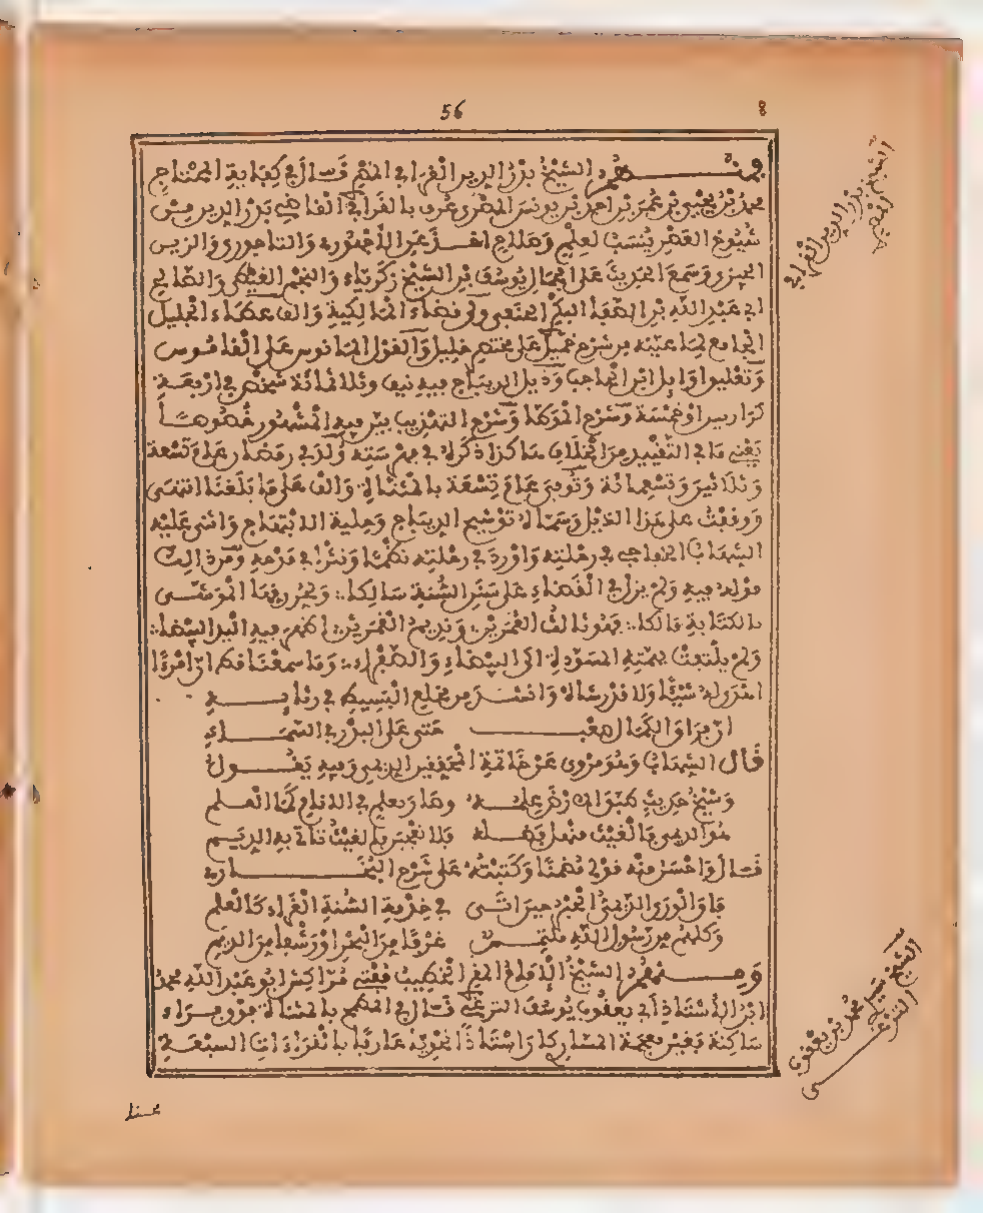 56
8
ومنهم الشيخ بدر الدين القرافي المصري قال في كفاية المحتاج
محمد بن يحيى بن عمر بن احمد بن يونس المصري عرف بالقرافي القاضي بدر الدين من
شيوخ العصر ينسب لعلم وصلاح اخذ عن الاجهوري والتاجوري والزين
الجيزي وسمع الحديث على الجمال يوسف بن الشيخ زكرياء والنجم الغيطي والصالح
ابي عبد الله بن ابي الصفا البكري الحنفي ولي قضاء المالكية والف عطاء الجليل
الجامع لما عليه من شرح جميل على مختصر خليل والقول المانوس على القاموس
وتعليقا وابن الحاجب وذيل الديباج فيه نيف وثلاثمائة شخص في اربعة
كراريس او خمسة وشرح الموطا وشرح التهذيب بين فيه المشهور خصوصا
يعني ما في التقييد من الخلاف هاكذا ذكره في فهرسته ولد في رمضان عام تسعة
وثلاثين وتسعمائة وتوفي عام تسعة بالمثناة والف على ما بلغنا انتهى
ووقفت على هذا الذيل وسماه توشيح الديباج وحلية الابتهاج واثنى عليه
الشهاب الخفاجي في رحلته واورد في رحلته نظما ونثرا في مدحه ومن ذلك
قوله فيه ولم يزل في القضاء على سنن السنة سالكا. ولحر رقها الموشى
بالكتابة مالكا. فهو ثالث العمرين. ونديم القمرين. اظهر فيه اليد البيضا.
ولم يلتفت بهمته المسودة الى البيضاء والصفراء. وما سمعنا قط ان امرءا
اهدى له شيئا ولا قدر شاة وانشد من مخلع البسيط في رثايه
ان مرا والكمال صعب حتى على البدر في السماء
قال الشهاب وهو مروي عن خاتمة الحفيين الديمي وفيه يقول
وشيخ حديث طبق الارض علمه وصار يعلم في الانام كما العلم
هو الديمي فالغيث منهل فضله فلا تعجبن فالغيث تاتي به الديم
قال واحسن منه قولي تضمنا وكتبته على شرح البخاري
فاق الورى الديمي الحبر حين اتى في خدمة السنة الغراء كالعلم
وكلهم من رسول الله ملتمس غرفا من البحر او رشفا من الديم
ومنهم الشيخ الامام الخطيب مفتي مراكش ابو عبد الله محمد
ابن الاستاذ ابي يعقوب يوسف الترغي قال في المطمح بالمثناة فوق فراء
ساكنة فغين معجمة المشارك استاذا نحويا عارفا بالقراءات السبعة
الشيخ بدر الدين القرافي
المصري
الشيخ سيدي محمد بن يعقوب
الترغي